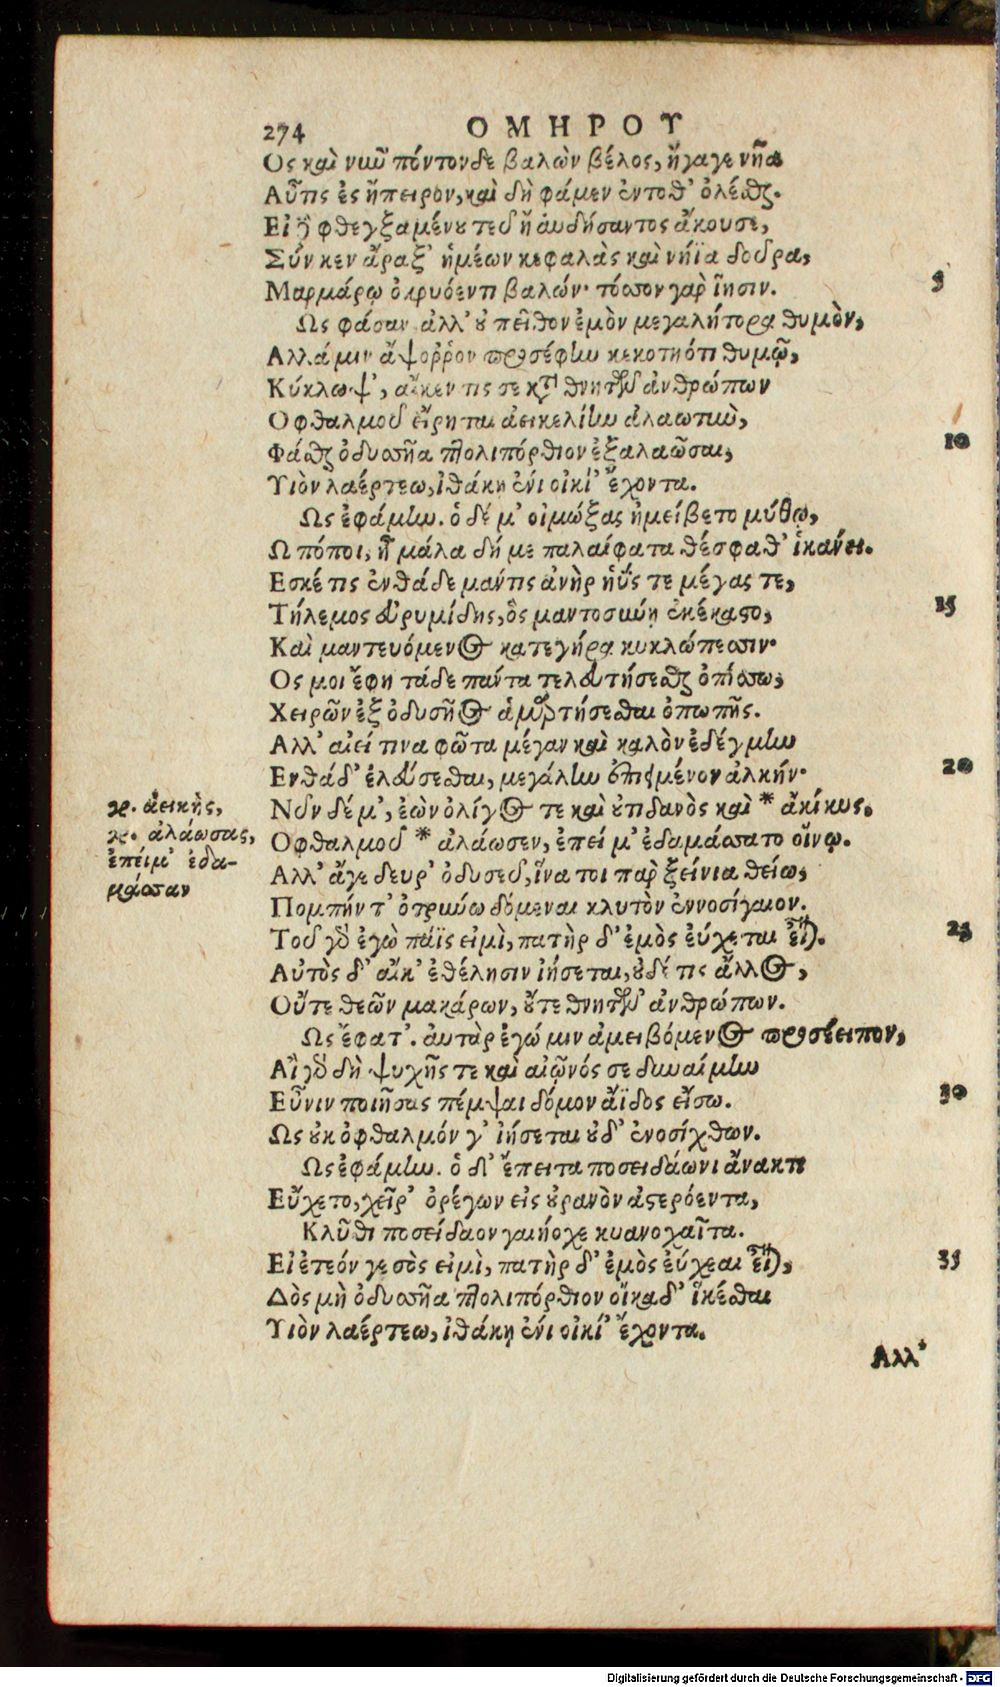 274 ΟΜΗΡΟΥ
Ος καὶ νῦν πόντονδε βαλὼν βέλος, ἤγαγε νῆα
Αὖτις ἐς ἤπειρον, καὶ δὴ φάμεν ἐντόθ' ὀλέσθαι.
Εἰ δὲ φθεγξαμένου τευ ἢ αὐδήσαντος ἄκουσε,
Σύν κεν ἄραξ' ἡμέων κεφαλὰς καὶ νήϊα δοῦρα,
Μαρμάρῳ ὀκρυόεντι βαλών· τόσσον γὰρ ἵησιν. 5
Ως φάσαν ἀλλ' οὐ πεῖθον ἐμὸν μεγαλήτορα θυμὸν,
Αλλά μιν ἄψοῤῥον προσέφην κεκοτηότι θυμῷ,
Κύκλωψ', αἴκεν τις σε καταθνητῶν ἀνθρώπων
Οφθαλμοῦ εἴρηται ἀεικελίην ἀλαωτὺν,
Φάσθαι ὀδυσσῆα πτολιπόρθιον ἐξαλαῶσαι, 10
Υιὸν λαέρτεω, ἰθάκῃ ἐνι οἰκί' ἔχοντα.
Ως ἐφάμην. ὁ δέ μ' οἰμώξας ἠμείβετο μύθῳ,
Ω πόποι, ἦ μάλα δή με παλαίφατα θέσφαθ' ἱκάνει.
Εσκέ τις ἐνθάδε μάντις ἀνὴρ ἠΰς τε μέγας τε,
Τήλεμος εὐρυμίδης, ὃς μαντοσύνῃ ἐκέκαστο, 15
Καὶ μαντευόμενος κατεγήρα κυκλώπεσσιν·
Ος μοι ἔφη τάδε πάντα τελευτήσεσθαι ὀπίσσω,
Χειρῶν ἐξ ὀδυσῆος ἁμαρτήσεσθαι ὀπωπῆς.
Αλλ' αἰεί τινα φῶτα μέγαν καὶ καλὸν ἐδέγμην
Ενθάδ' ἐλεύσεσθαι, μεγάλην ἐπιειμένον ἀλκήν· 20
Νῦν δέ μ', ἐὼν ὀλίγος τε καὶ οὐτιδανὸς καὶ * ἄκικυς,
Οφθαλμοῦ * ἀλάωσεν, ἐπεί μ' ἐδαμάσσατο οἴνῳ.
γρ. ἀεικὴς,
γρ. ἀλάωσας,
ἐπείμ' ἐδα-
μάσσαν
Αλλ' ἄγε δευρ' ὀδυσεῦ, ἵνα τοι παρ ξείνια θείω,
Πομπήν τ' ὀτρύνω δόμεναι κλυτὸν ἐννοσίγαιον.
Τοῦ γὰρ ἐγὼ πάϊς εἰμὶ, πατὴρ δ' ἐμὸς εὔχεται εἶναι. 25
Αὐτὸς δ' αἴκ' ἐθέλησιν ἰήσεται, οὐδέ τις ἄλλος,
Οὔτε θεῶν μακάρων, οὔτε θνητῶν ἀνθρώπων.
Ως ἔφατ'. αὐτὰρ ἐγώ μιν ἀμειβόμενος προσέειπον,
Αἲ γὰρ δὴ ψυχῆς τε καὶ αἰῶνός σε δυναίμην
Εὖνιν ποιήσας πέμψαι δόμον ἄϊδος εἴσω. 30
Ως οὐκ ὀφθαλμόν γ' ἰήσεται οὐδ' ἐνοσίχθων.
Ως ἐφάμην. ὁ δ' ἔπειτα ποσειδάωνι ἄνακτι
Εὔχετο, χεῖρ' ὀρέγων εἰς οὐρανὸν ἀστερόεντα,
Κλῦθι ποσείδαον γαιήοχε κυανοχαῖτα.
Εἰ ἐτεόν γε σὸς εἰμὶ, πατὴρ δ' ἐμὸς εὔχεαι εἶναι, 35
Δὸς μὴ ὀδυσσῆα πτολιπόρθιον οἴκαδ' ἱκέσθαι
Υιὸν λαέρτεω, ἰθάκῃ ἐνι οἰκί' ἔχοντα.
Αλλ'
Digitalisierung gefördert durch die Deutsche Forschungsgemeinschaft - DFG